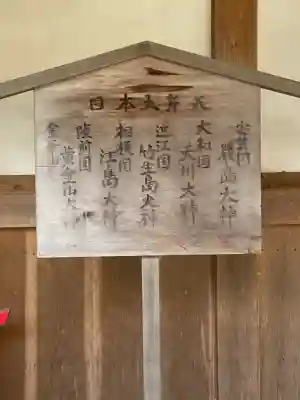 日本大弁天
安芸国
厳島大神
大和国
天川大神
近江国
竹生島大神
相模国
江島大神
陸前国
黄金山大神